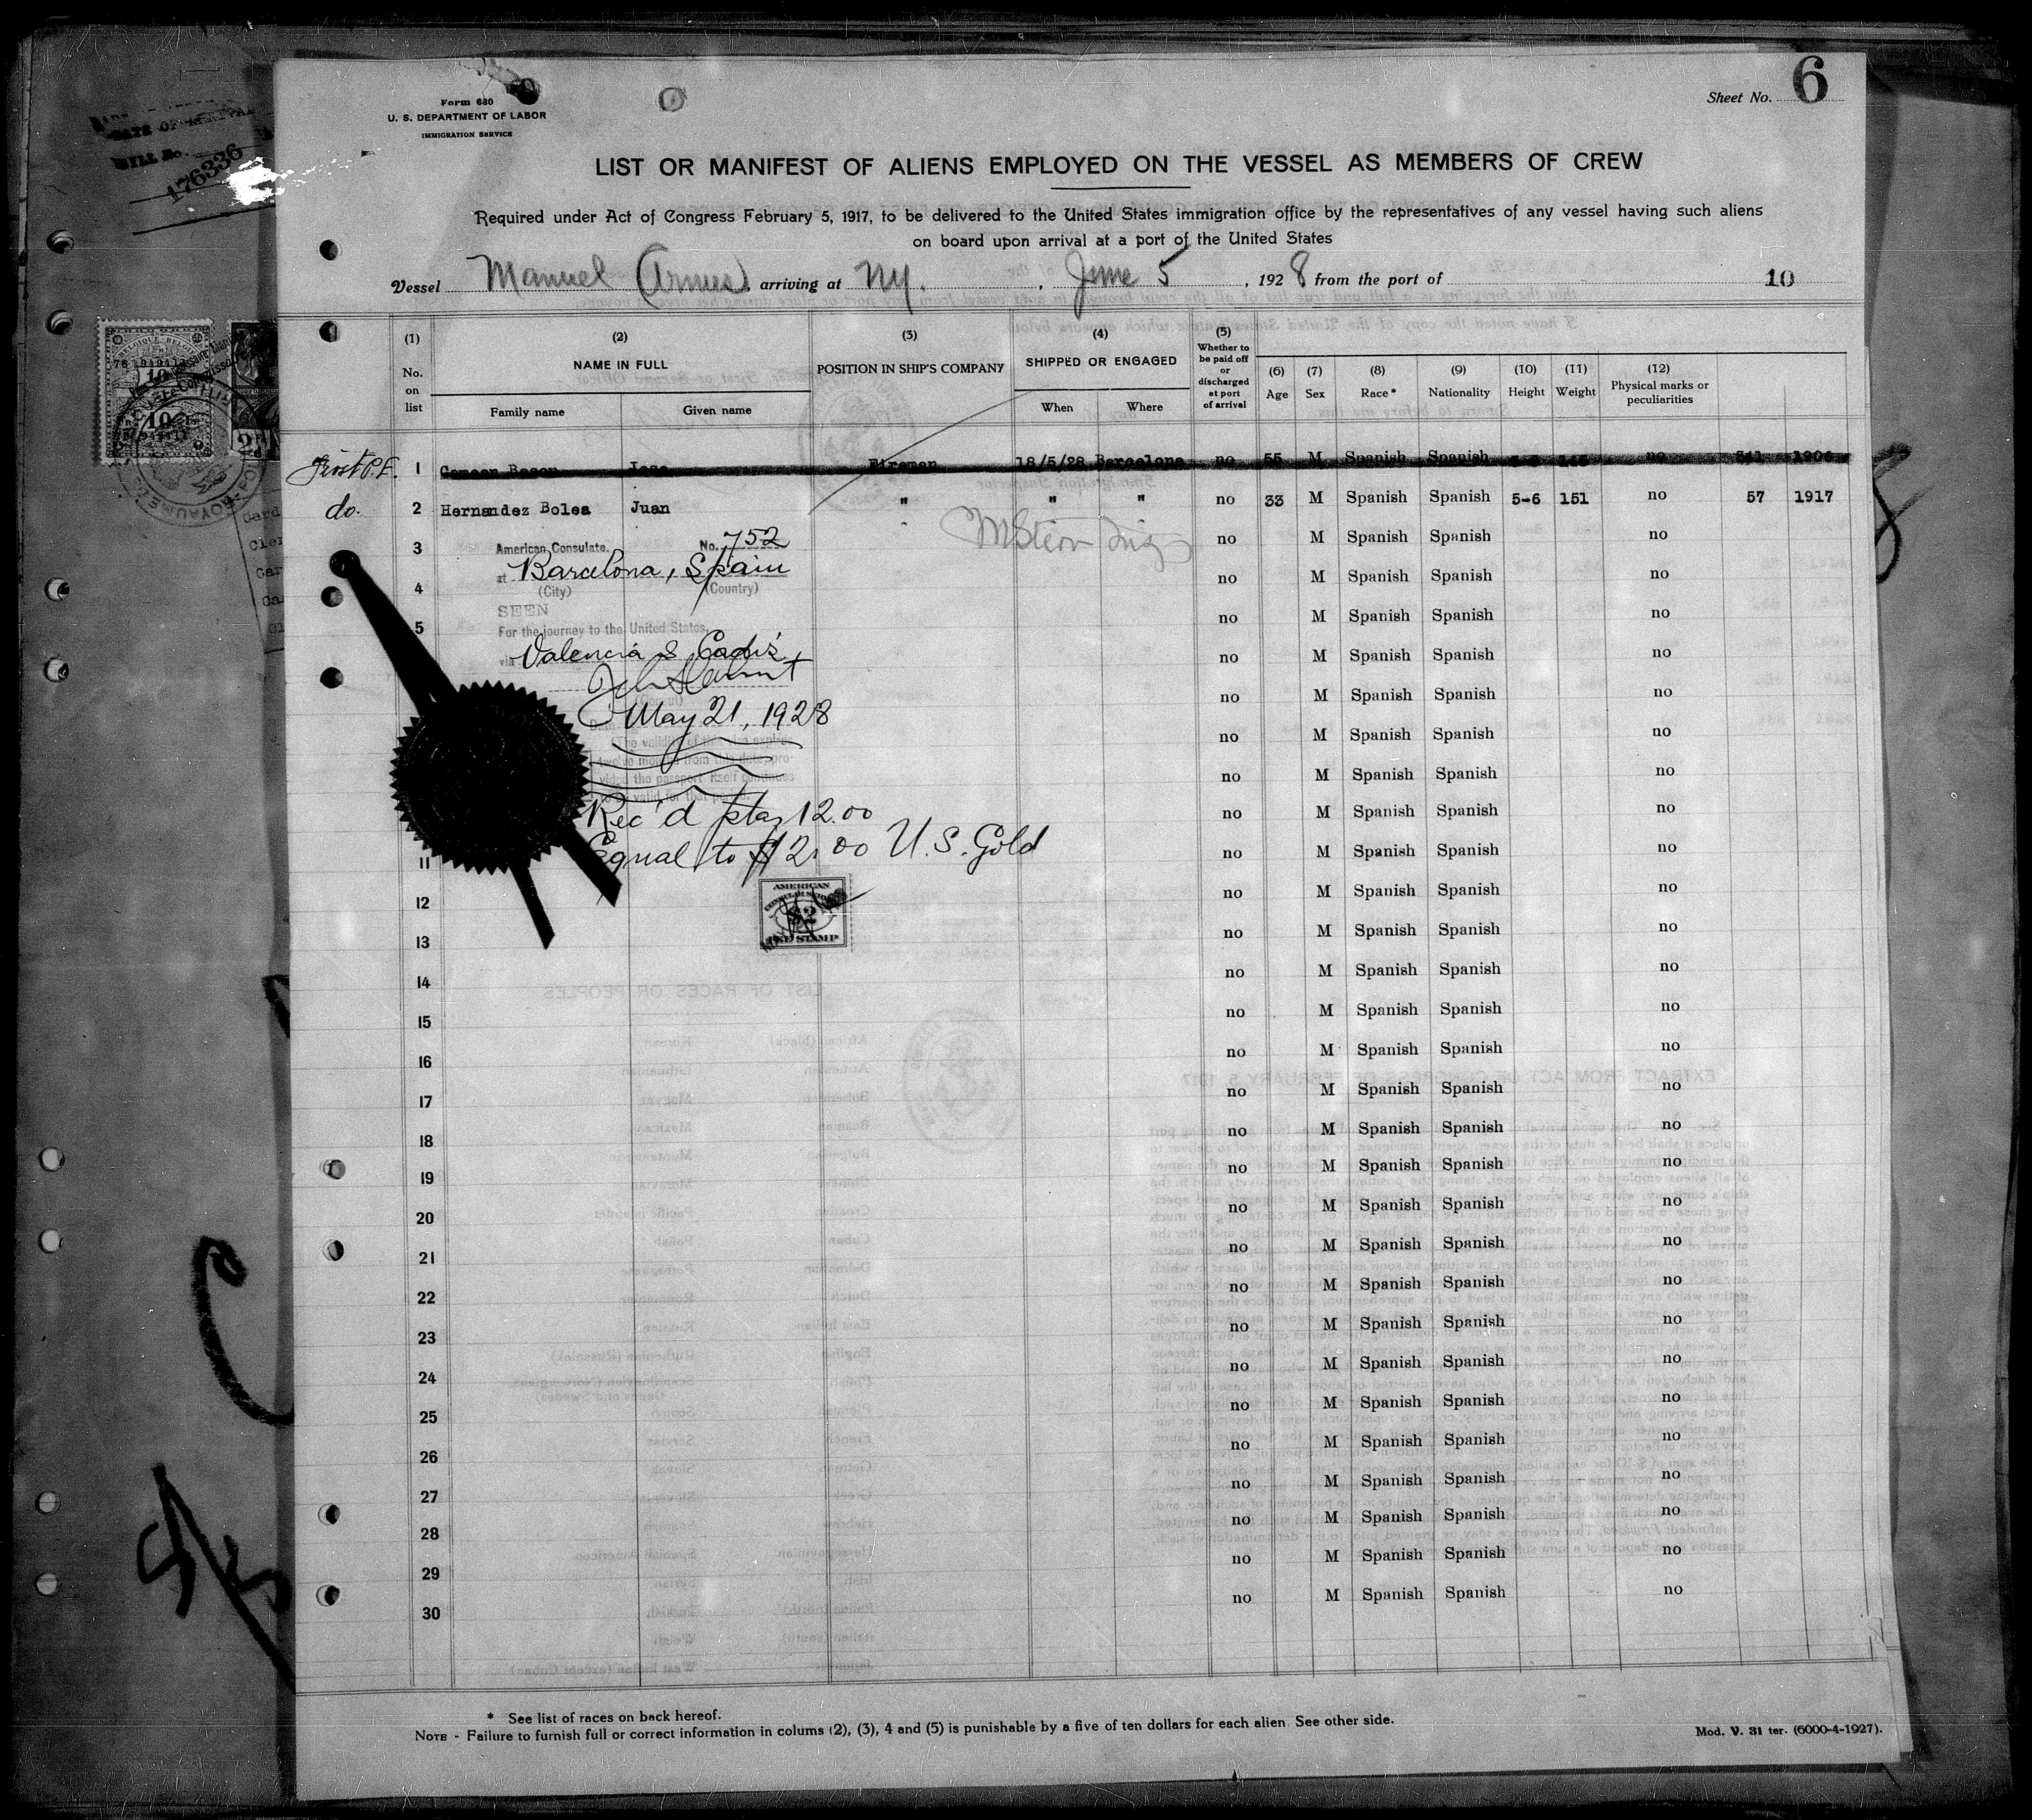 Form 680
U. S. DEPARTMENT OF LABOR
IMMIGRATION SERVICE
Sheet No. 6
176336
LIST OR MANIFEST OF ALIENS EMPLOYED ON THE VESSEL AS MEMBERS OF CREW
Required under Act of Congress February 5, 1917, to be delivered to the United States immigration office by the representatives of any vessel having such aliens
on board upon arrival at a port of the United States
Vessel Manuel (Arnus), arriving at NY. , June 5 , 1928 from the port of 10
(1) No. on list
(2) NAME IN FULL
Family name Given name
(3) POSITION IN SHIP'S COMPANY
(4) SHIPPED OR ENGAGED
When Where
(5) Whether to be paid off or discharged at port of arrival
(6) Age
(7) Sex
(8) Race *
(9) Nationality
(10) Height
(11) Weight
(12) Physical marks or peculiarities
1 Jose Fireman 18/5/28 Barcelona no 55 M Spanish Spanish no 541 1906
do. 2 Hernandez Bolea Juan " " " no 33 M Spanish Spanish 5-6 151 no 57 1917
3 no M Spanish Spanish no
American Consulate. No. 752
at Barcelona, Spain
(City) (Country)
4 no M Spanish Spanish no
SEEN
5 no M Spanish Spanish no
For the journey to the United States,
via Valencia & Cadiz
no M Spanish Spanish no
no M Spanish Spanish no
May 21, 1928
no M Spanish Spanish no
no M Spanish Spanish no
Rec'd ptas 12.00
no M Spanish Spanish no
Equal to $2.00 U.S. Gold
11 no M Spanish Spanish no
AMERICAN
$2
FEE STAMP
12 no M Spanish Spanish no
13 no M Spanish Spanish no
14 no M Spanish Spanish no
15 no M Spanish Spanish no
16 no M Spanish Spanish no
17 no M Spanish Spanish no
18 no M Spanish Spanish no
19 no M Spanish Spanish no
20 no M Spanish Spanish no
21 no M Spanish Spanish no
22 no M Spanish Spanish no
23 no M Spanish Spanish no
24 no M Spanish Spanish no
25 no M Spanish Spanish no
26 no M Spanish Spanish no
27 no M Spanish Spanish no
28 no M Spanish Spanish no
29 no M Spanish Spanish no
30 no M Spanish Spanish no
* See list of races on back hereof.
NOTE - Failure to furnish full or correct information in colums (2), (3), 4 and (5) is punishable by a five of ten dollars for each alien. See other side.
Mod. V. 31 ter. (6000-4-1927).